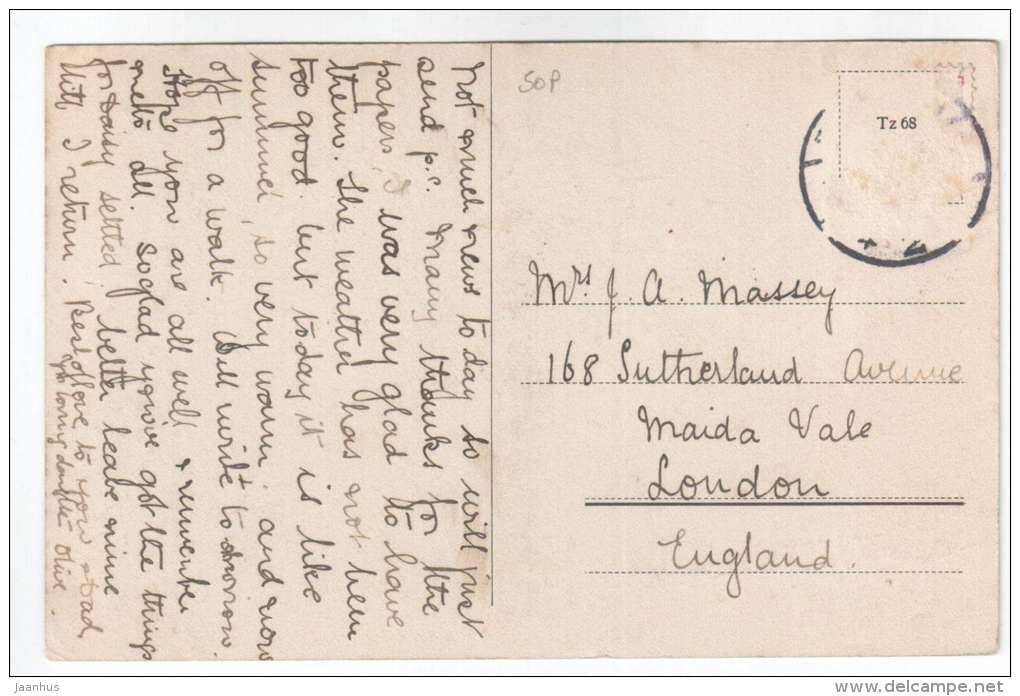 Not much news to day so will just
send p.c. Many thanks for the
papers, I was very glad to have
them. The weather has not been
too good. but today it is like
summer, so very warm. and now
off for a walk. Will write tomorrow.
Hope you are all well & remember
me to all. so glad you've got the things
for Daisy settled, better leave mine
till I return. Best of love to you & Dad,
yr loving daughter Olive.
50P
Tz 68
Mrs J. A. Massey
168 Sutherland Avenue
Maida Vale
London
England.
jaanhus
www.delcampe.net